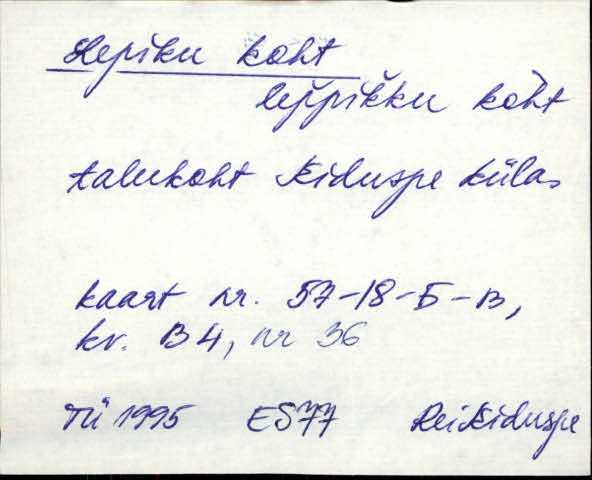 Lepiku koht
lep̆p̆ik̆ku köht
talukoht Kiduspe külas
kaart nr. 57-18-Б-в,
kv. B4, nr 36
TÜ 1995 ES77 Rei Kiduspe